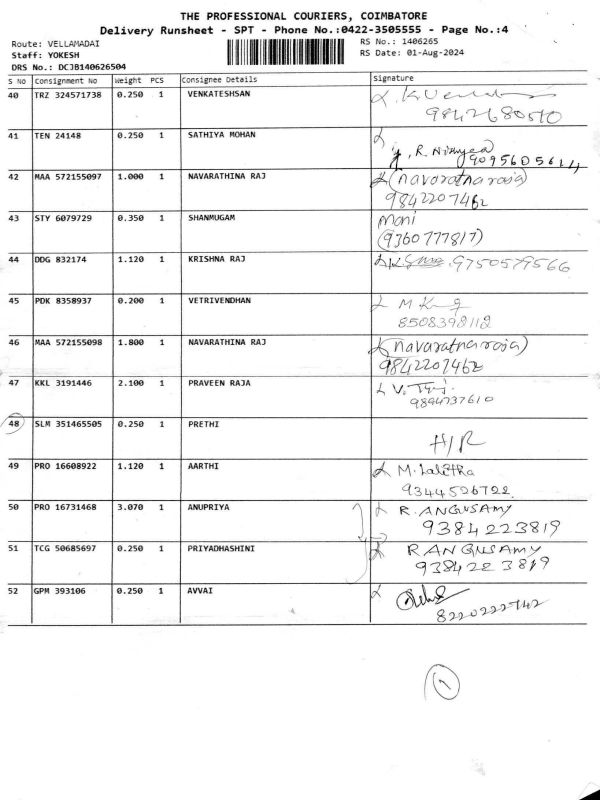 THE PROFESSIONAL COURIERS, COIMBATORE
Delivery Runsheet - SPT - Phone No.:0422-3505555 - Page No.:4
Route: VELLAMADAI RS No.: 1406265
Staff: YOKESH RS Date: 01-Aug-2024
DRS No.: DCJB140626504
S No Consignment No Weight PCS Consignee Details Signature
40 TRZ 324571738 0.250 1 VENKATESHSAN
9842680510
41 TEN 24148 0.250 1 SATHIYA MOHAN
9095605614
42 MAA 572155097 1.000 1 NAVARATHINA RAJ (navaratnaraja)
9842207462
43 STY 6079729 0.350 1 SHANMUGAM Mani
(9360777817)
44 DDG 832174 1.120 1 KRISHNA RAJ 9750579566
45 PDK 8358937 0.200 1 VETRIVENDHAN
8508398112
46 MAA 572155098 1.800 1 NAVARATHINA RAJ (navaratnaraja)
9842207462
47 KKL 3191446 2.100 1 PRAVEEN RAJA
9894737610
48 SLM 351465505 0.250 1 PRETHI
H/R
49 PRO 16608922 1.120 1 AARTHI M. Lalitha
9344526722
50 PRO 16731468 3.070 1 ANUPRIYA R. ANGUSAMY
9384223819
51 TCG 50685697 0.250 1 PRIYADHASHINI R ANGUSAMY
9384223819
52 GPM 393106 0.250 1 AVVAI
8220222742